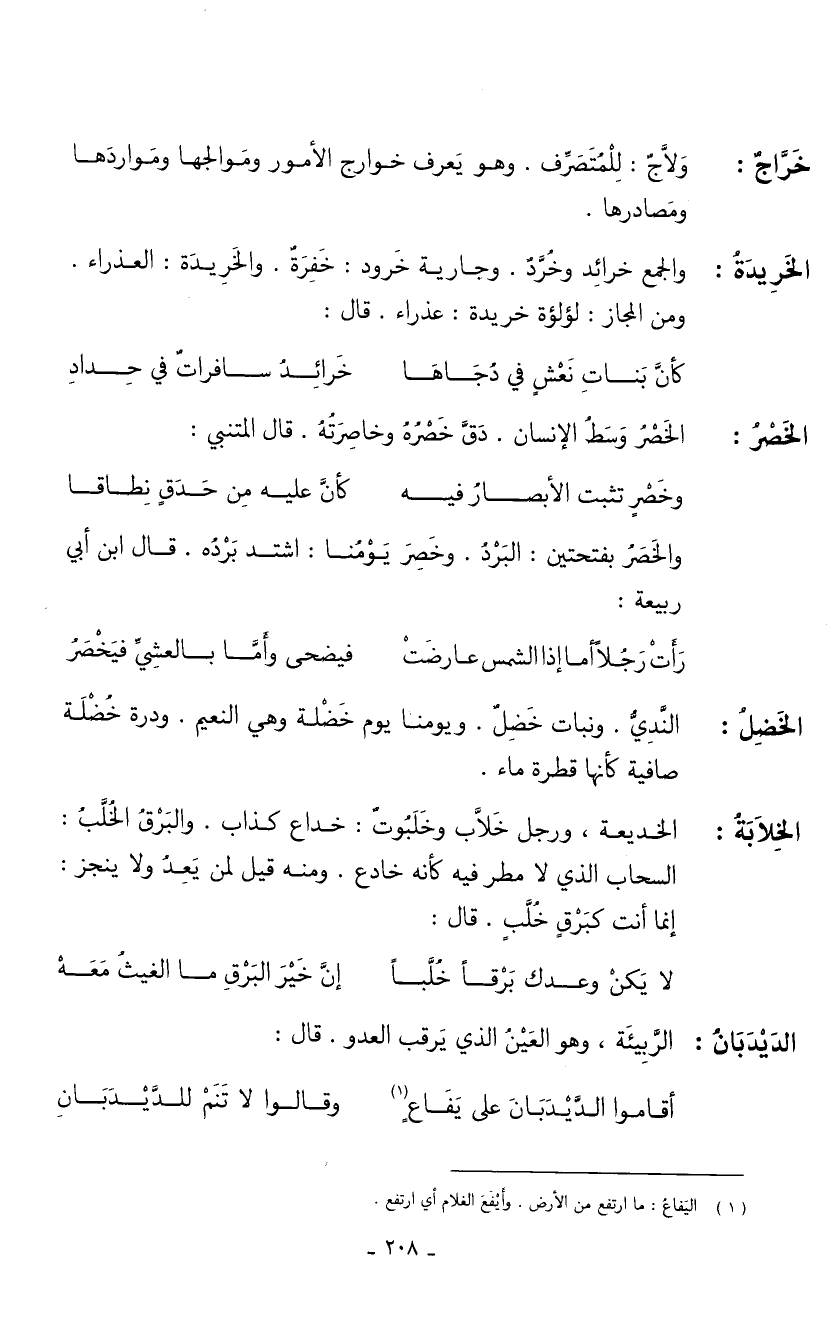 خَرَّاجٌ : وَلاَّجٌ : لِلْمُتَصَرِّف . وهو يَعرف خوارج الأمور ومَوالجها ومَواردَها
ومَصادرها .
الخَرِيدَةُ : والجمع خرائد وخُرَّدٌ . وجارية خَرود : خَفِرَةٌ . والخَرِيدَة : العذراء .
ومن المجاز : لؤلؤة خريدة : عذراء . قال :
كأنَّ بَناتِ نَعْشٍ في دُجَاهَا خَرائدُ سافراتٌ في حِدادِ
الخَصْرُ : الخَصْرُ وَسَطُ الإنسان . دَقَّ خَصْرُهُ وخاصِرَتُهُ . قال المتنبي :
وخَصْرٍ تثبت الأبصارُ فيه كأنَّ عليه مِن حَدَقٍ نِطاقا
والخَصَرُ بفتحتين : البَرْدُ . وخَصِرَ يَوْمُنا : اشتد بَرْدُه . قال ابن أبي
ربيعة :
رَأَتْ رَجُلاً أما إذا الشمس عارضَتْ فيضحى وأَمَّا بالعشيِّ فيَخْصَرُ
الخَضِلُ : النَّدِيُّ . ونبات خَضِلٌ . ويومنا يوم خَضْلة وهي النعيم . ودرة خُضْلَة
صافية كأنها قطرة ماء .
الخِلاَبَةُ : الخديعة ، ورجل خَلاَّب وخَلَبُوتٌ : خداع كذاب . والبَرْقُ الخُلَّبُ :
السحاب الذي لا مطر فيه كأنه خادع . ومنه قيل لمن يَعِدُ ولا ينجز :
إنما أنت كبَرْقٍ خُلَّبٍ . قال :
لا يَكنْ وعدك بَرْقاً خُلَّباً إنَّ خَيْرَ البَرْقِ ما الغيثُ مَعَهْ
الدَيْدَبَانُ : الرَّبِيئَة ، وهو العَيْنُ الذي يَرقب العدو . قال :
أقاموا الدَّيْدَبَانَ على يَفَاعٍ(١) وقالوا لا تَنَمْ للدَّيْدَبَانِ
(١) اليَفاعُ : ما ارتفع من الأرض . وأَيْفَعَ الغلام أي ارتفع .
- ٢٠٨ -